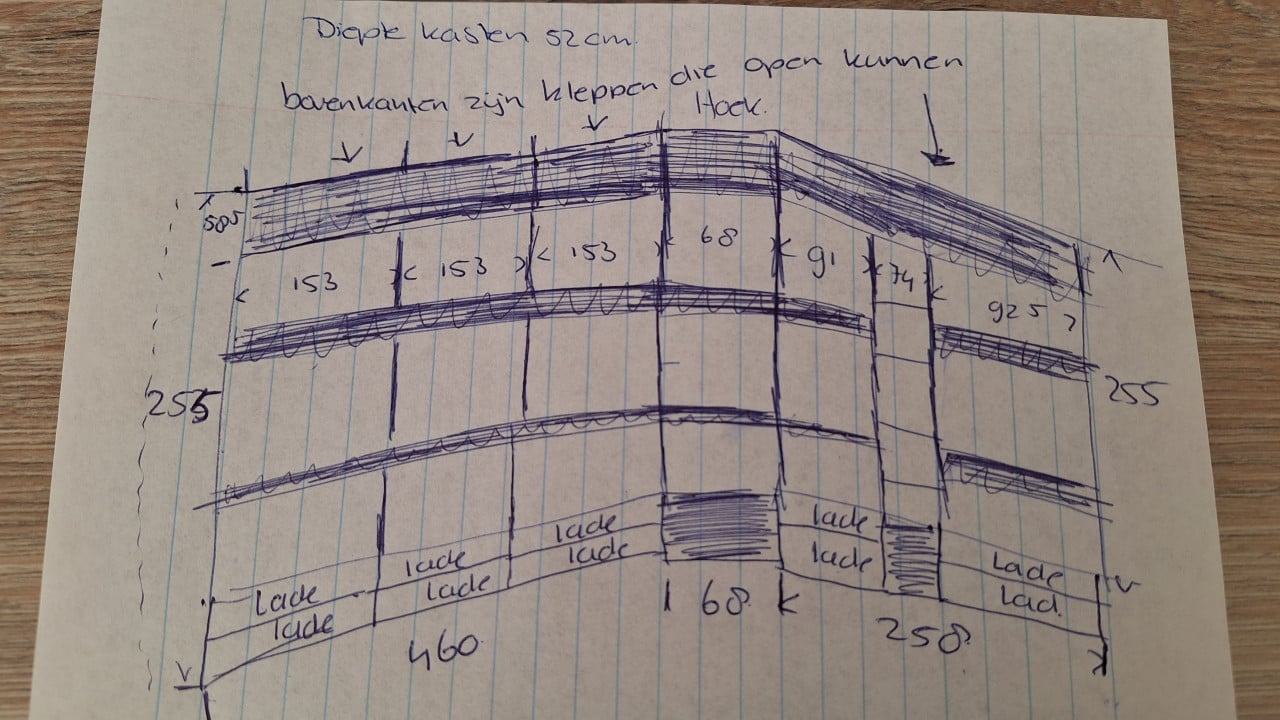 Diepte kasten 52 cm.
bovenkanten zijn kleppen die open kunnen
Hoek.
585
153
153
153
68
91
74
925
255
255
lade
lade
lade
lade
lade
lade
lade
lade
lade
Lad.
460
68
258